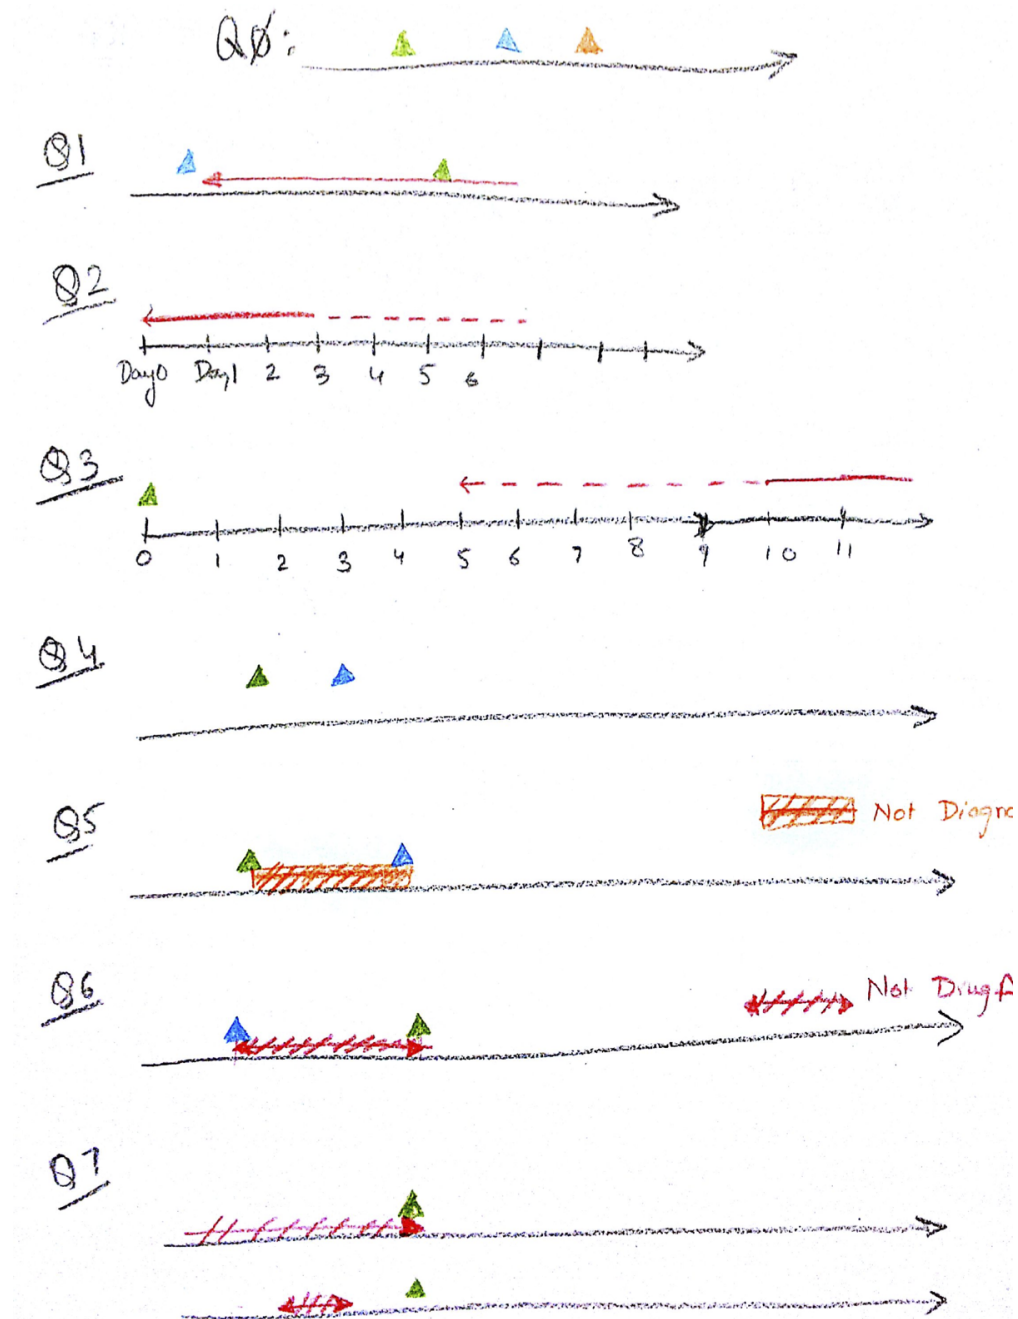 QØ:
Q1
Q2
Day0 Day1 2 3 4 5 6
Q3
0 1 2 3 4 5 6 7 8 9 10 11
Q4
Q5
Not
Q6
Not
Q7